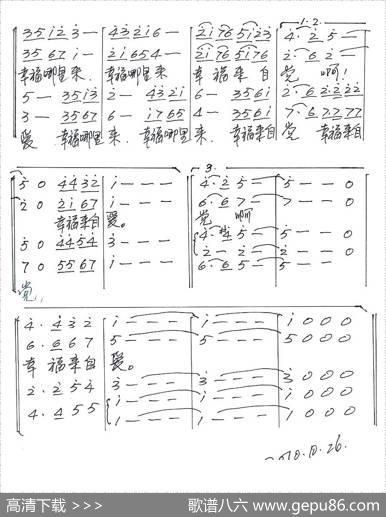 1. 2.
3 5 1 2 3 — 4 3 2 1 6 — 2 1 7 6 5 1 2 3 4 · 2 5 —
3 5 6 7 1 — 2 1 6 5 4 — 2 1 7 6 5 1 7 6 2 · 6 2 —
幸福哪里来、 幸福哪里来 幸 福 来 自 党 啊!
5 — 3 5 1 3 2 — 4 3 2 1 6 — 3 5 6 1 2 · 6 2 2 2 2
3 — 3 5 6 7 6 — 1 7 6 5 4 — 3 5 6 1 7 · 6 7 7 7 7
爱 幸福哪里来、 幸福哪里来、 幸福来自 党 幸福来自
3.
5 0 4 4 3 2 1 — — — 4 · 2 5 — 5 — — 0
2 0 2 1 6 7 1 — — — 6 · 6 7 — 7 — — 0
幸福来自 爱。 党 啊
5 0 4 4 5 4 3 — — — 4 · 4 5 — 5 — — 0
2 — 2 — 2 — — 0
7 0 5 5 6 7 1 — — — 6 · 6 5 — 5 — —
党,
4 · 4 3 2 1 — — — 1 — — — 1 0 0 0
6 · 6 6 7 5 — — — 5 — — — 5 0 0 0
幸 福 来 自 爱。
2 · 2 5 4 3 — — — 3 — — — 3 0 0 0
4 · 4 5 5 1 — — — 1 — — — 1 0 0 0
10.10.26.
高清下载 >>> 歌谱八六 www.gepu86.com